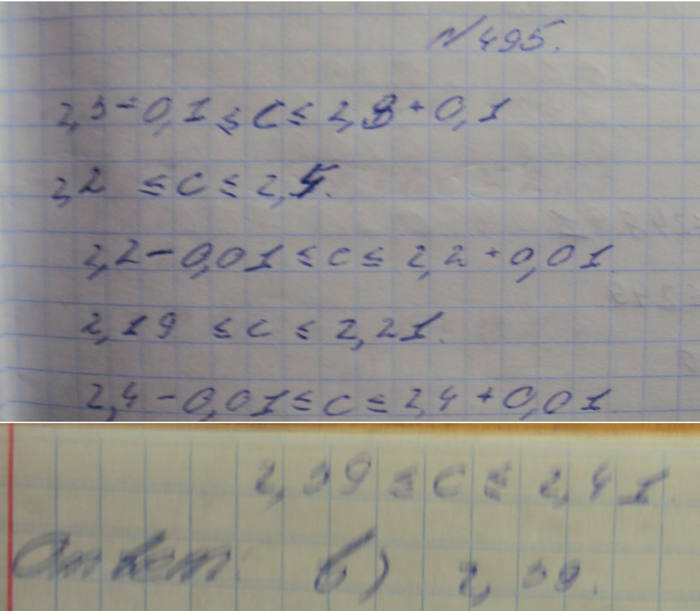 N 495.
2,3 - 0,1 ≤ c ≤ 2,3 + 0,1
2,2 ≤ c ≤ 2,4.
2,2 - 0,01 ≤ c ≤ 2,2 + 0,01
2,19 ≤ c ≤ 2,21.
2,4 - 0,01 ≤ c ≤ 2,4 + 0,01
2,39 ≤ c ≤ 2,41
Ответ б) 2,39.